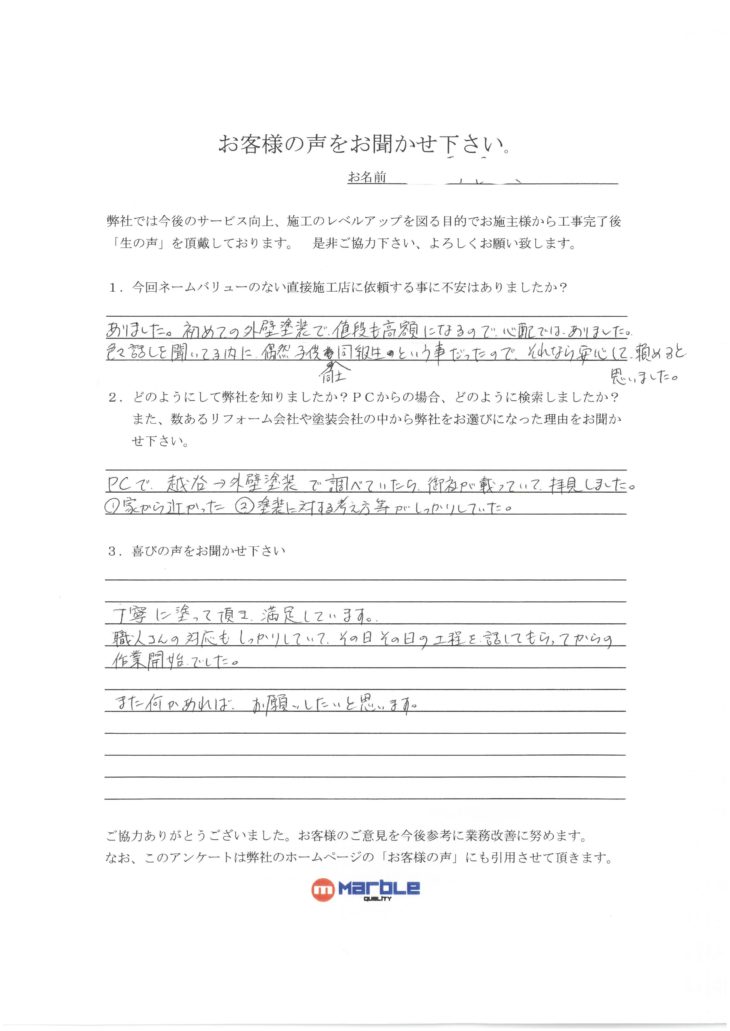 お客様の声をお聞かせ下さい。
お名前
弊社では今後のサービス向上、施工のレベルアップを図る目的でお施主様から工事完了後
「生の声」を頂戴しております。 是非ご協力下さい、よろしくお願い致します。
１．今回ネームバリューのない直接施工店に依頼する事に不安はありましたか？
ありました。初めての外壁塗装で、値段も高額になるので、心配では、ありました。
色々話しを聞いてる内に、偶然 子供同士同級生という事だったので、それなら安心して、頼めると
思いました。
２．どのようにして弊社を知りましたか？ＰＣからの場合、どのように検索しましたか？
また、数あるリフォーム会社や塗装会社の中から弊社をお選びになった理由をお聞か
せ下さい。
PCで、越谷→外壁塗装 で調べていたら、御社が載っていて、拝見しました。
①家から近かった ②塗装に対する考え方等がしっかりしていた。
３．喜びの声をお聞かせ下さい
丁寧に塗って頂き、満足しています。
職人さんの対応もしっかりしていて、その日その日の工程を話してもらってからの
作業開始でした。
また何かあれば、お願いしたいと思います。
ご協力ありがとうございました。お客様のご意見を今後参考に業務改善に努めます。
なお、このアンケートは弊社のホームページの「お客様の声」にも引用させて頂きます。
m MARBLE
QUALITY